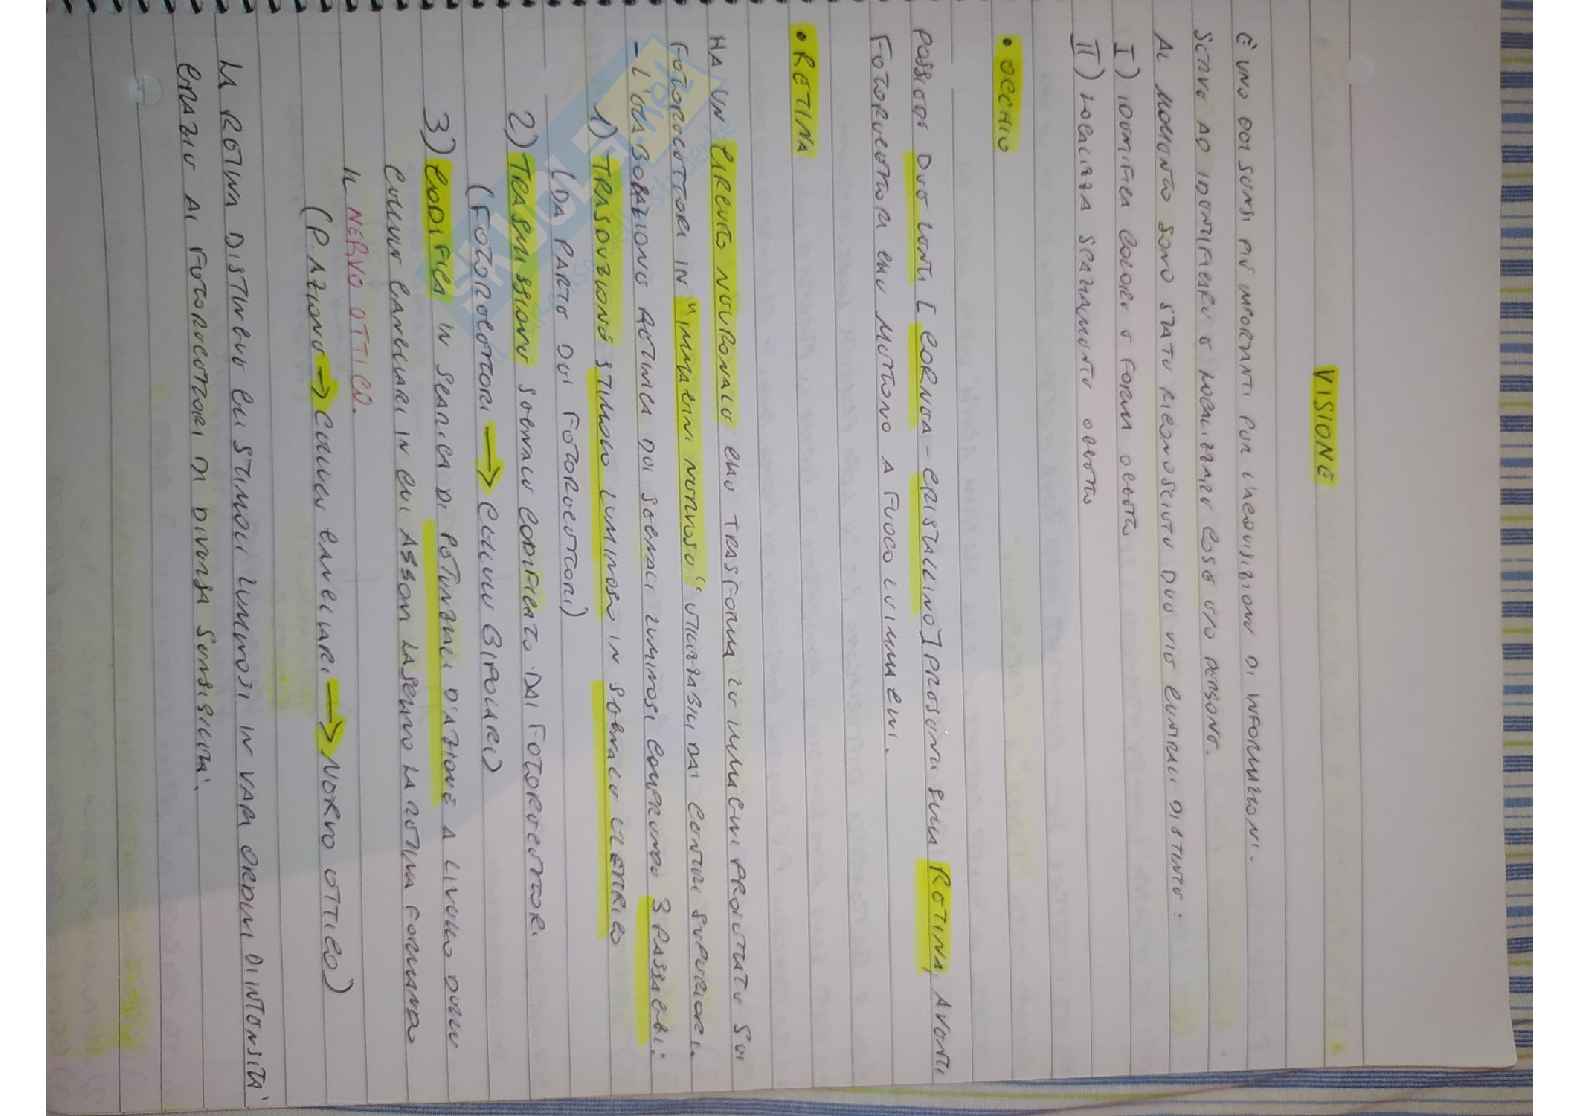 VISIONE
È UNO DEI SENSI PIÙ IMPORTANTI PER L'ACQUISIZIONE DI INFORMAZIONI.
SERVE AD IDENTIFICARE E LOCALIZZARE COSE E/O PERSONE.
AL MOMENTO SONO STATE RICONOSCIUTE DUE VIE CENTRALI DISTINTE:
I) IDENTIFICA COLORE E FORMA OGGETTO
II) LOCALIZZA SPAZIALMENTE OGGETTO
• OCCHIO
POSSIEDE DUE LENTI [CORNEA - CRISTALLINO] PRESENTA SULLA RETINA, AVENTE
FOTORECETTORI CHE METTONO A FUOCO LE IMMAGINI.
• RETINA
HA UN CIRCUITO NEURONALE CHE TRASFORMA LE IMMAGINI PROIETTATE SUI
FOTORECETTORI IN "IMMAGINI NERVOSE" UTILIZZABILI DAI CENTRI SUPERIORI.
- L'ELABORAZIONE RETINICA DEI SEGNALI LUMINOSI COMPRENDE 3 PASSAGGI:
1) TRASDUZIONE STIMOLO LUMINOSO IN SEGNALE ELETTRICO
(DA PARTE DEI FOTORECETTORI)
2) TRASMISSIONE SEGNALE CODIFICATO DAI FOTORECETTORI
(FOTORECETTORI → CELLULE BIPOLARI)
3) CODIFICA IN SCARICA DI POTENZIALI D'AZIONE A LIVELLO DELLE
CELLULE GANGLIARI IN CUI ASSONI LASCIANO LA RETINA FORMANDO
IL NERVO OTTICO.
(P. AZIONE → CELLULE GANGLIARI → NERVO OTTICO)
LA RETINA DISTINGUE GLI STIMOLI LUMINOSI IN VARI ORDINI DI INTENSITÀ
GRAZIE AI FOTORECETTORI DI DIVERSA SENSIBILITÀ.
SKUOLA